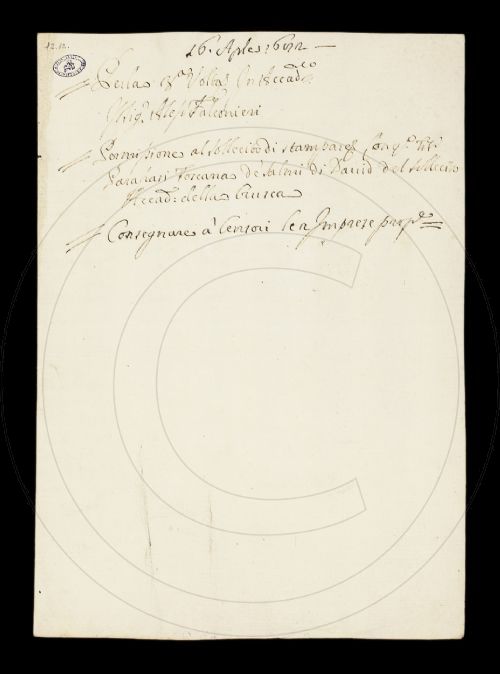 12.12.
16. Aple 1692 —
Per la Volta In Accad.co
Sig. Aless Falconieri
Permissione al Sollecito di stampare Con q.o tit.o
Parafrasi Toscana de Salmi di David del Sollecito
Accad: della Crusca
Consegnare à Censori le Imprese